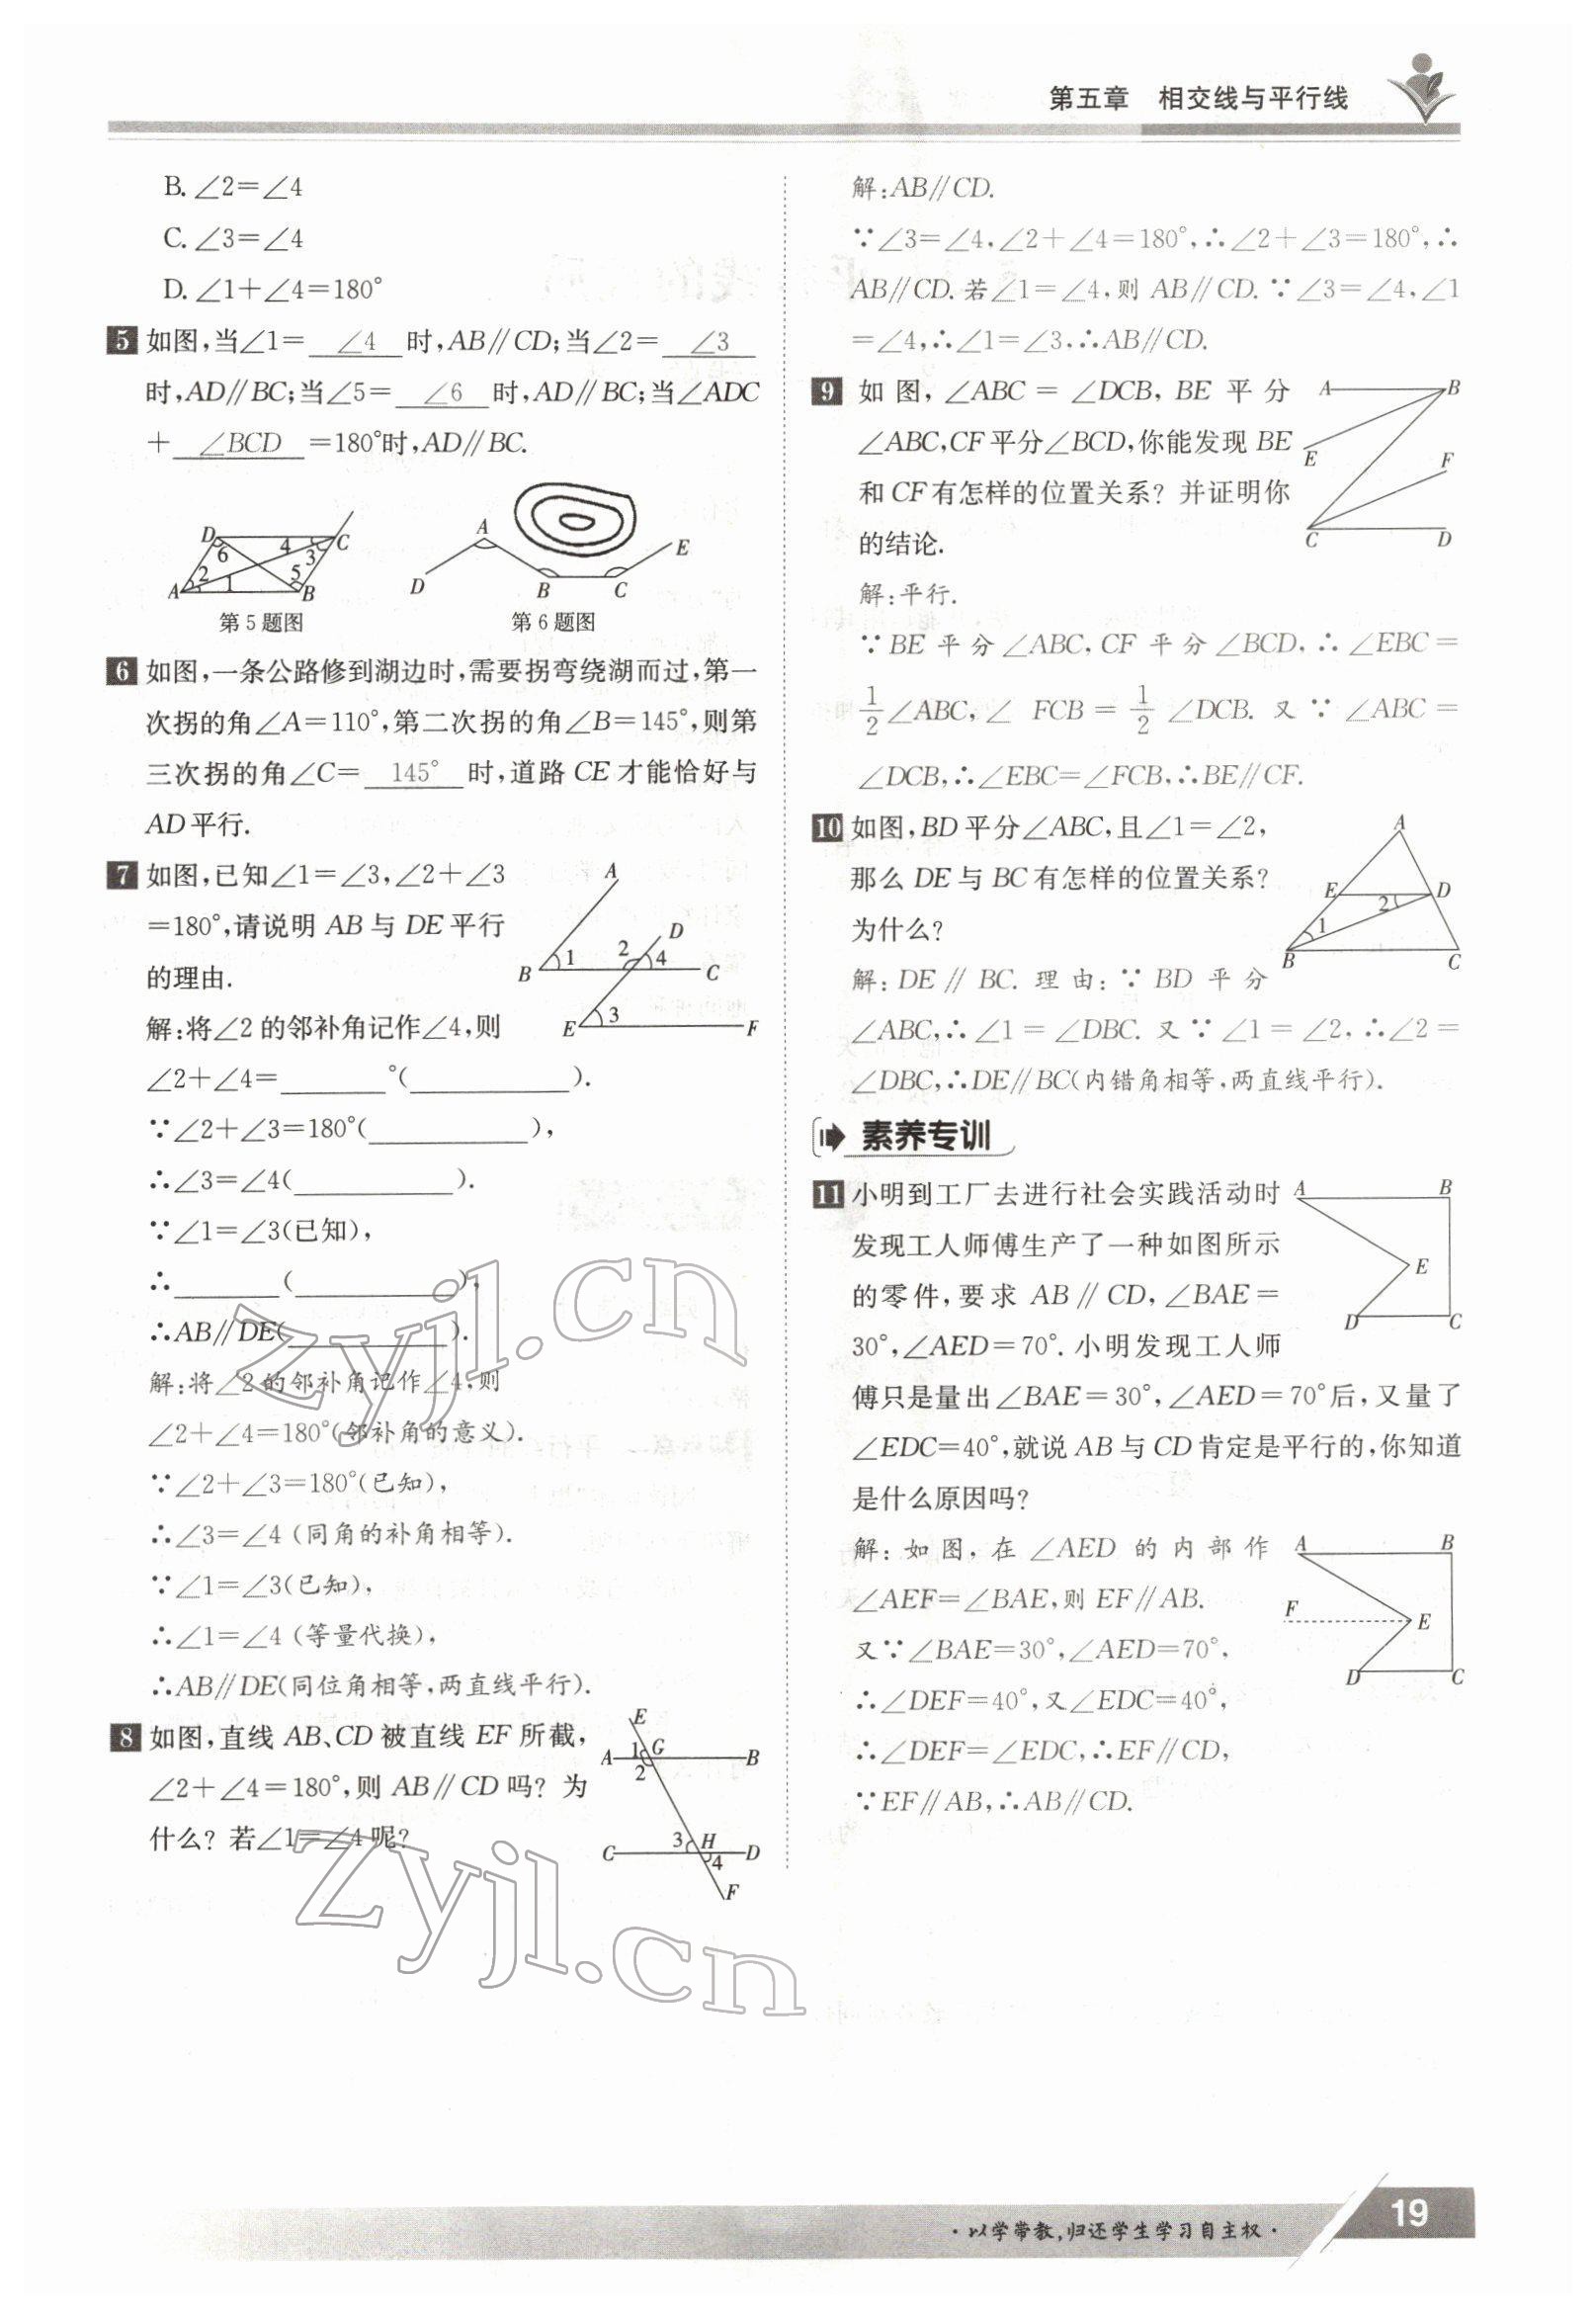 第五章 相交线与平行线
B. ∠2=∠4
C. ∠3=∠4
D. ∠1+∠4=180°
5 如图,当∠1= ∠4 时,AB∥CD;当∠2= ∠3
时,AD∥BC;当∠5= ∠6 时,AD∥BC;当∠ADC
+ ∠BCD =180°时,AD∥BC.
D C 4 6 3 2 1 5 A B
A E D B C
第5题图 第6题图
6 如图,一条公路修到湖边时,需要拐弯绕湖而过,第一
次拐的角∠A=110°,第二次拐的角∠B=145°,则第
三次拐的角∠C= 145° 时,道路 CE 才能恰好与
AD平行.
7 如图,已知∠1=∠3,∠2+∠3
=180°,请说明 AB 与 DE 平行
的理由.
A D 2 4 1 B C 3 E F
解:将∠2的邻补角记作∠4,则
∠2+∠4=________°(____________).
∵∠2+∠3=180°(____________),
∴∠3=∠4(____________).
∵∠1=∠3(已知),
∴________(____________),
∴AB∥DE(____________).
解:将∠2的邻补角记作∠4,则
∠2+∠4=180°(邻补角的意义).
∵∠2+∠3=180°(已知),
∴∠3=∠4 (同角的补角相等).
∵∠1=∠3(已知),
∴∠1=∠4 (等量代换),
∴AB∥DE(同位角相等,两直线平行).
8 如图,直线 AB、CD 被直线 EF 所截,
∠2+∠4=180°,则 AB∥CD 吗? 为
什么? 若∠1=∠4呢?
E A 1 G B 2 C 3 H D 4 F
解:AB∥CD.
∵∠3=∠4,∠2+∠4=180°,∴∠2+∠3=180°,∴
AB∥CD. 若∠1=∠4,则 AB∥CD. ∵∠3=∠4,∠1
=∠4,∴∠1=∠3,∴AB∥CD.
9 如图, ∠ABC = ∠DCB, BE 平分
∠ABC,CF平分∠BCD,你能发现 BE
和CF有怎样的位置关系? 并证明你
的结论.
A B E F C D
解:平行.
∵BE 平分∠ABC, CF 平分∠BCD, ∴∠EBC=
1/2∠ABC, ∠FCB = 1/2∠DCB. 又∵∠ABC=
∠DCB,∴∠EBC=∠FCB,∴BE∥CF.
10 如图,BD平分∠ABC,且∠1=∠2,
那么 DE 与 BC 有怎样的位置关系?
为什么?
A E D 2 1 B C
解: DE∥BC. 理由: ∵BD 平分
∠ABC,∴∠1=∠DBC. 又∵∠1=∠2,∴∠2=
∠DBC,∴DE∥BC(内错角相等,两直线平行).
素养专训
11 小明到工厂去进行社会实践活动时
发现工人师傅生产了一种如图所示
的零件,要求 AB∥CD,∠BAE=
30°,∠AED=70°. 小明发现工人师
傅只是量出∠BAE=30°,∠AED=70°后,又量了
∠EDC=40°,就说 AB 与 CD 肯定是平行的,你知道
是什么原因吗?
A B E D C
解:如图,在∠AED 的内部作
∠AEF=∠BAE,则 EF∥AB.
又∵∠BAE=30°,∠AED=70°,
∴∠DEF=40°,又∠EDC=40°,
∴∠DEF=∠EDC,∴EF∥CD,
∵EF∥AB,∴AB∥CD.
A B F E D C
zyjl.cn
zyjl.cn
·以学带教,归还学生学习自主权·
19